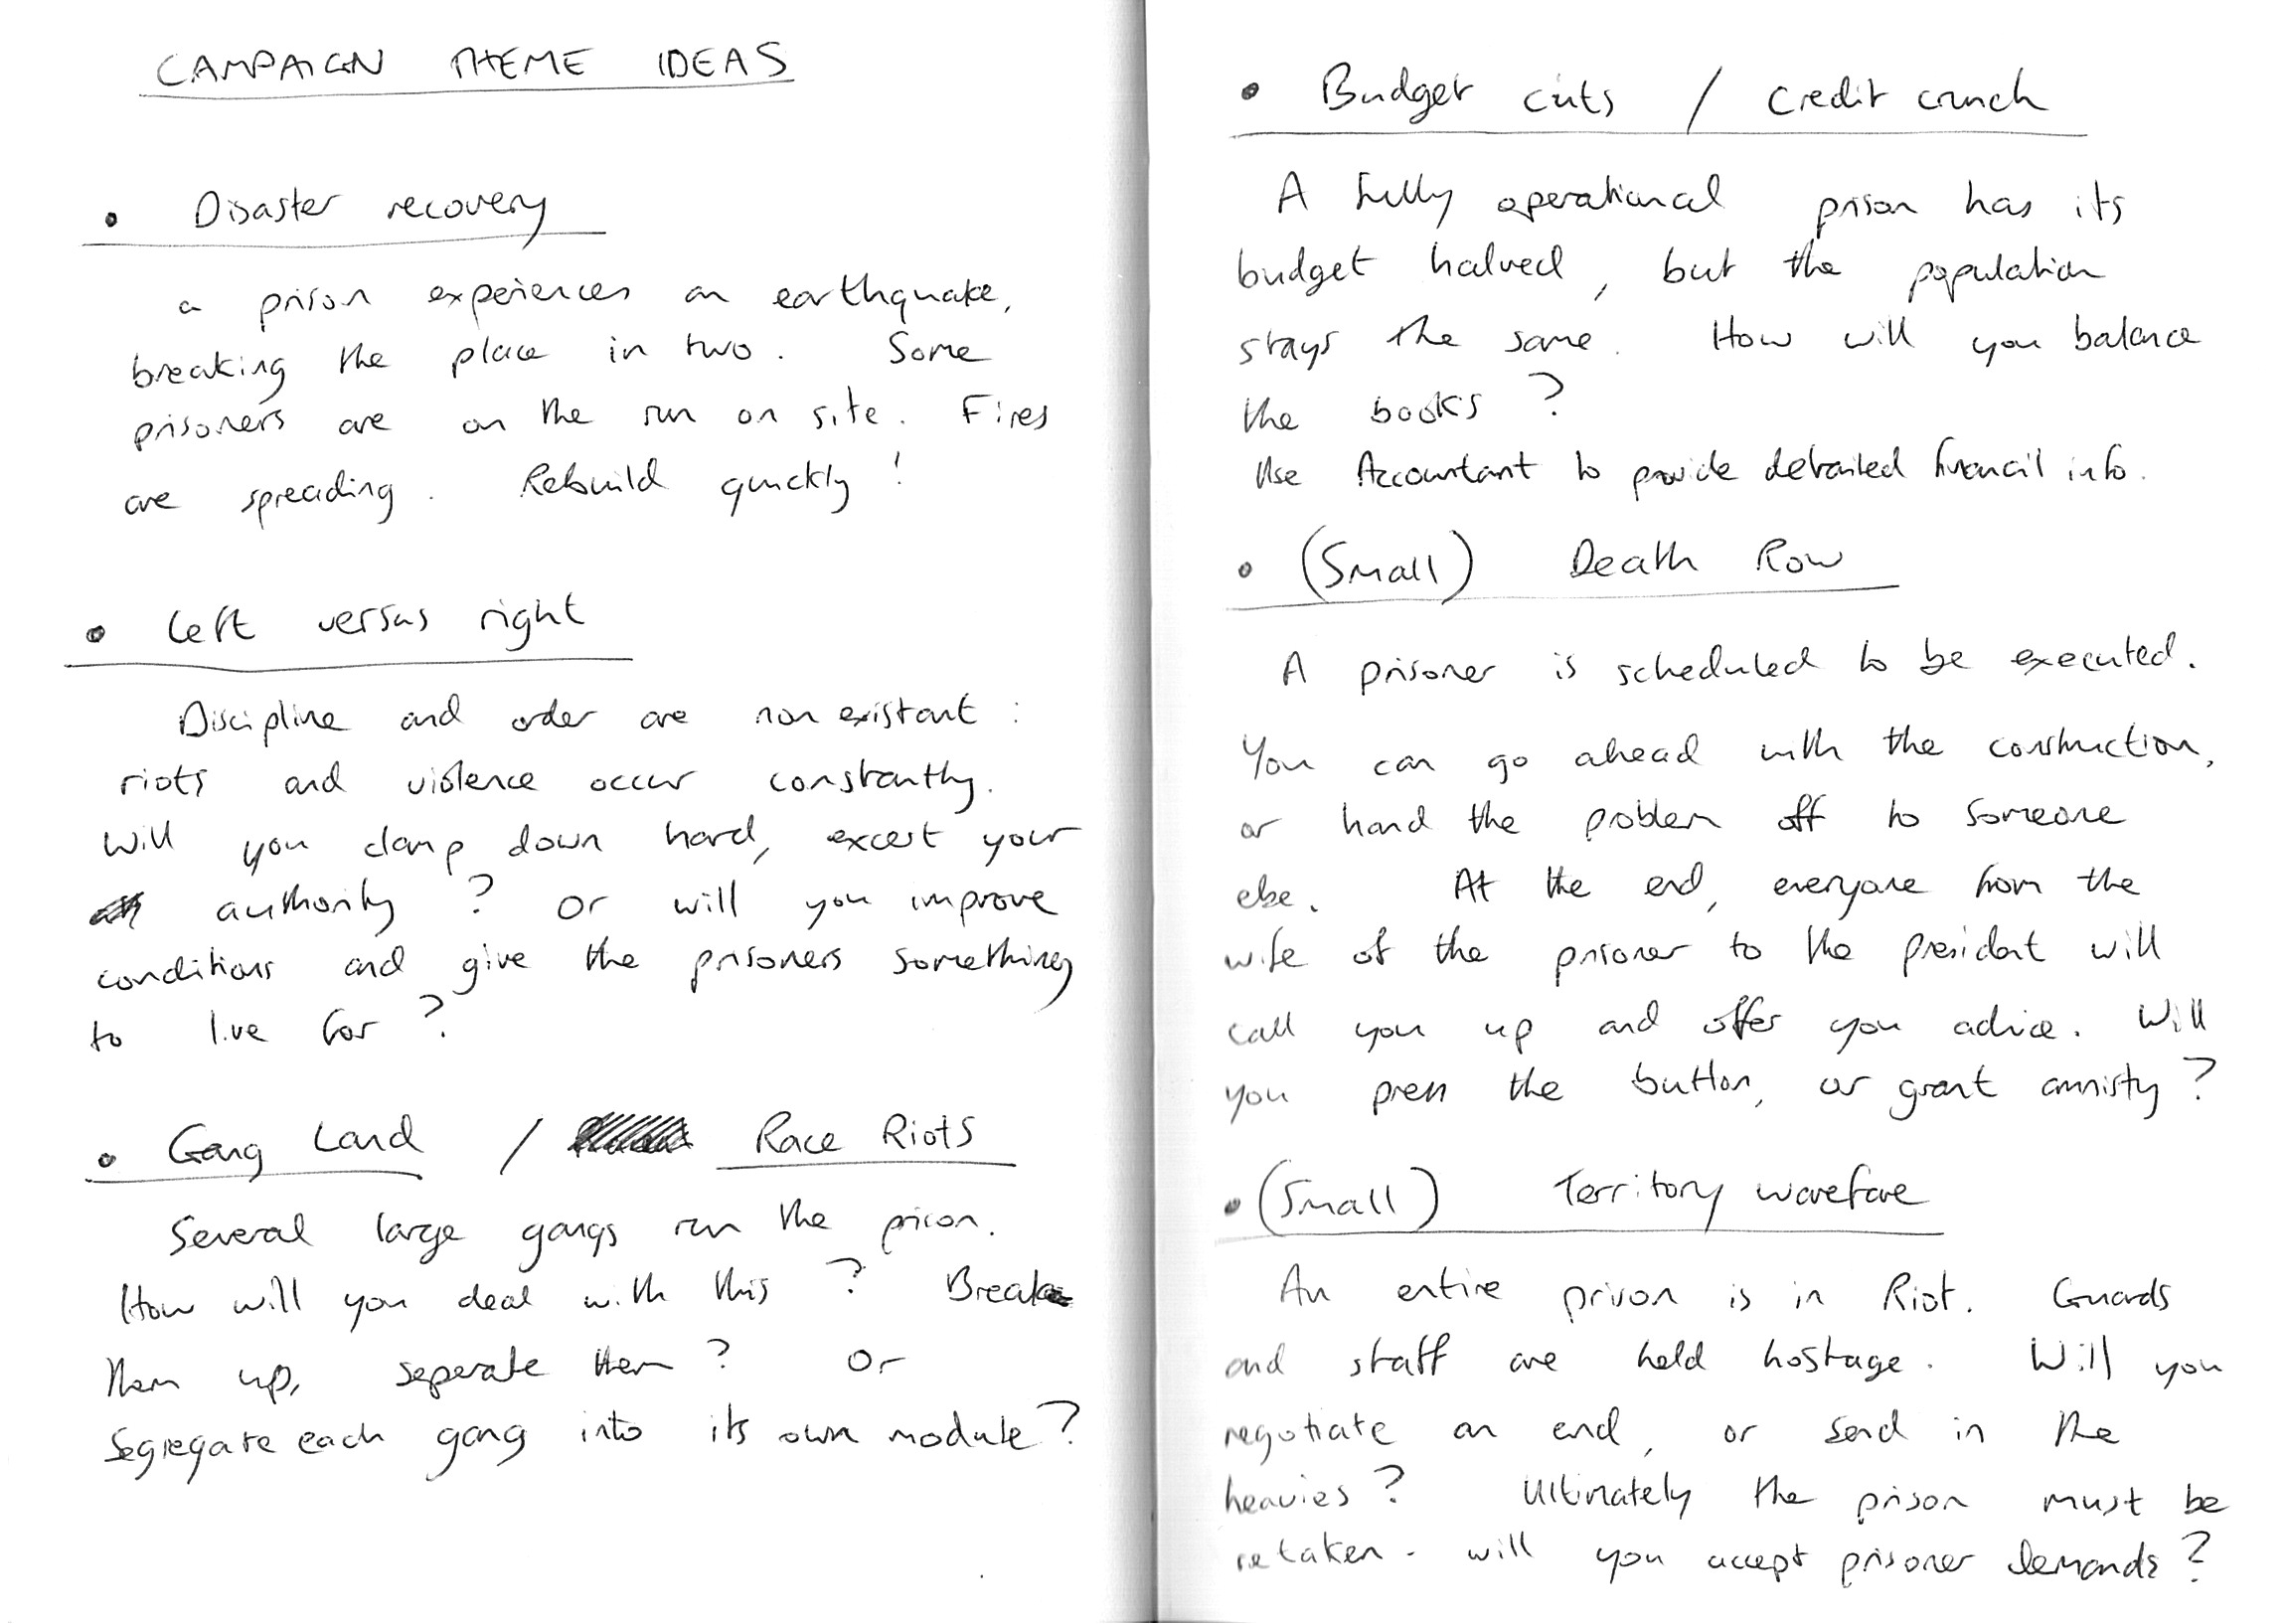 CAMPAIGN THEME IDEAS
• Disaster recovery
a prison experiences an earthquake,
breaking the place in two. Some
prisoners are on the run on site. Fires
are spreading. Rebuild quickly!
• Left versus right
Discipline and order are non existant:
riots and violence occur constantly.
Will you clamp down hard, excert your
authority? Or will you improve
conditions and give the prisoners something
to live for?
• Gang Land / Race Riots
Several large gangs run the prison.
How will you deal with this? Break
them up, seperate them? Or
segregate each gang into its own module?
• Budget cuts / Credit crunch
A fully operational prison has its
budget halved, but the population
stays the same. How will you balance
the books?
Use Accountant to provide detailed financil info.
• (Small) Death Row
A prisoner is scheduled to be executed.
You can go ahead with the construction,
or hand the problem off to someone
else. At the end, everyone from the
wife of the prisoner to the president will
call you up and offer you advice. Will
you press the button, or grant amnisty?
• (Small) Territory warefare
An entire prison is in Riot. Guards
and staff are held hostage. Will you
negotiate an end, or send in the
heavies? Ultimately the prison must be
retaken - will you accept prisoner demands?